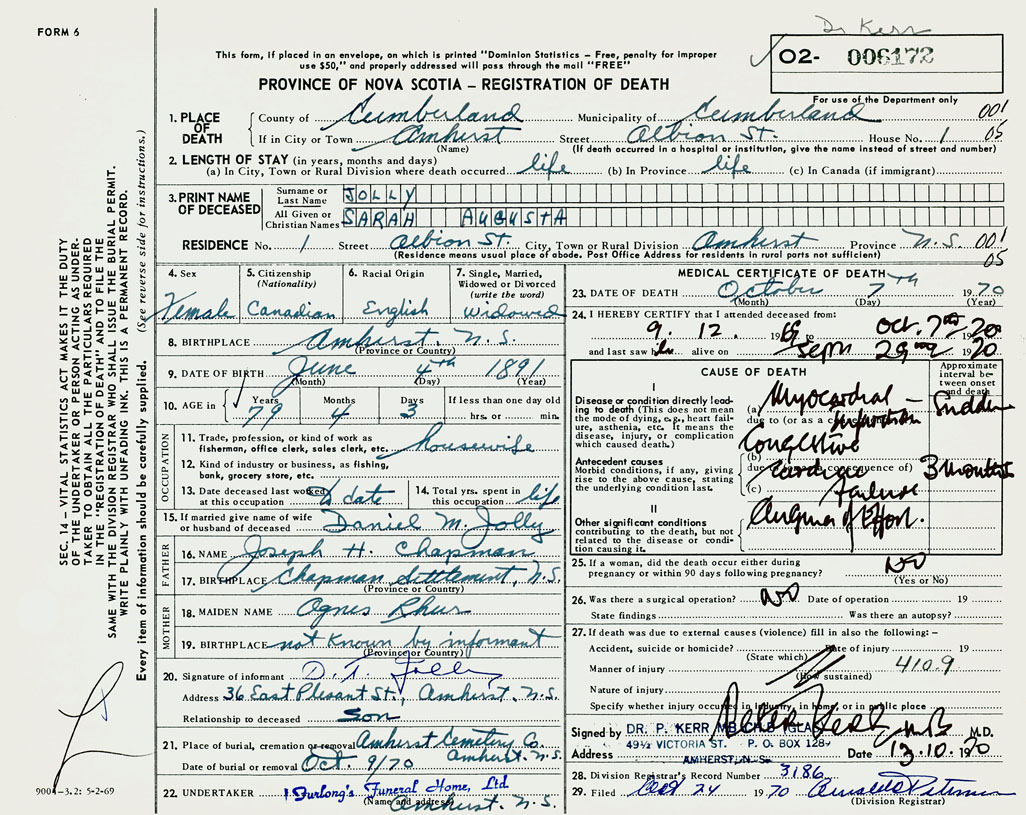 FORM 6
Dr Kerr
This form, if placed in an envelope, on which is printed "Dominion Statistics – Free, penalty for improper
use $50," and properly addressed will pass through the mail "FREE"
O2- 006172
PROVINCE OF NOVA SCOTIA – REGISTRATION OF DEATH
For use of the Department only
1. PLACE OF DEATH
County of Cumberland Municipality of Cumberland 001
If in City or Town Amherst Street Albion St. House No. 1 05
(Name) (If death occurred in a hospital or institution, give the name instead of street and number)
2. LENGTH OF STAY (in years, months and days)
(a) In City, Town or Rural Division where death occurred life (b) In Province life (c) In Canada (if immigrant)
3. PRINT NAME OF DECEASED
Surname or Last Name JOLLY
All Given or Christian Names SARAH AUGUSTA
RESIDENCE No. 1 Street Albion St. City, Town or Rural Division Amherst Province N.S. 001
(Residence means usual place of abode. Post Office Address for residents in rural parts not sufficient) 05
4. Sex Female
5. Citizenship (Nationality) Canadian
6. Racial Origin English
7. Single, Married, Widowed or Divorced (write the word) Widowed
8. BIRTHPLACE Amherst N.S.
(Province or Country)
9. DATE OF BIRTH June 4th 1891
(Month) (Day) (Year)
10. AGE in Years Months Days If less than one day old
79 4 3 hrs. or min.
OCCUPATION
11. Trade, profession, or kind of work as
fisherman, office clerk, sales clerk, etc. housewife
12. Kind of industry or business, as fishing,
bank, grocery store, etc.
13. Date deceased last worked
at this occupation date
14. Total yrs. spent in
this occupation life
15. If married give name of wife
or husband of deceased Daniel M. Jolly
FATHER
16. NAME Joseph H. Chapman
17. BIRTHPLACE Chapman Settlement, N.S.
(Province or Country)
MOTHER
18. MAIDEN NAME Agnes
19. BIRTHPLACE not known by informant
(Province or Country)
20. Signature of informant D. T. Jolly
Address 36 East Plesant St., Amherst N.S.
Relationship to deceased Son
21. Place of burial, cremation or removal Amherst Cemetery Co.
Amherst. N.S.
Date of burial or removal Oct. 9/70
22. UNDERTAKER Furlong's Funeral Home, Ltd
(Name and address) Amherst. N.S.
MEDICAL CERTIFICATE OF DEATH
23. DATE OF DEATH October 7th 1970
(Month) (Day) (Year)
24. I HEREBY CERTIFY that I attended deceased from:
9. 12. 19 Oct. 7 1970
and last saw h alive on Sept 29 1970
CAUSE OF DEATH
Approximate interval between onset and death
I
Disease or condition directly leading to death (This does not mean the mode of dying, e.g., heart failure, asthenia, etc. It means the disease, injury, or complication which caused death.)
(a) Myocardial Sudden
due to (or as a consequence of)
Congestive
Antecedent causes
Morbid conditions, if any, giving rise to the above cause, stating the underlying condition last.
(b) Cardiac 3 months
due to (or as a consequence of)
(c) failure
II
Other significant conditions contributing to the death, but not related to the disease or condition causing it.
Angina of Effort.
25. If a woman, did the death occur either during
pregnancy or within 90 days following pregnancy? NO
(Yes or No)
26. Was there a surgical operation? NO Date of operation 19
State findings Was there an autopsy?
27. If death was due to external causes (violence) fill in also the following: –
Accident, suicide or homicide? Date of injury 19
(State which)
Manner of injury 410.9
(How sustained)
Nature of injury
Specify whether injury occurred in industry, in home, or in public place
Signed by DR. P. KERR MB M.D.
Address 49½ VICTORIA ST. P. O. BOX 128 Date 13.10.1970
AMHERST, N.S.
28. Division Registrar's Record Number 3186
29. Filed Oct 24 1970
(Division Registrar)
SEC. 14 – VITAL STATISTICS ACT MAKES IT THE DUTY
OF THE UNDERTAKER OR PERSON ACTING AS UNDER-
TAKER TO OBTAIN ALL THE PARTICULARS REQUIRED
IN THE "REGISTRATION OF DEATH" AND TO FILE THE
SAME WITH THE DIVISION REGISTRAR WHO SHALL ISSUE THE BURIAL PERMIT.
WRITE PLAINLY WITH UNFADING INK. THIS IS A PERMANENT RECORD.
Every item of information should be carefully supplied. (See reverse side for instructions.)
9004–3.2: 5-2-69